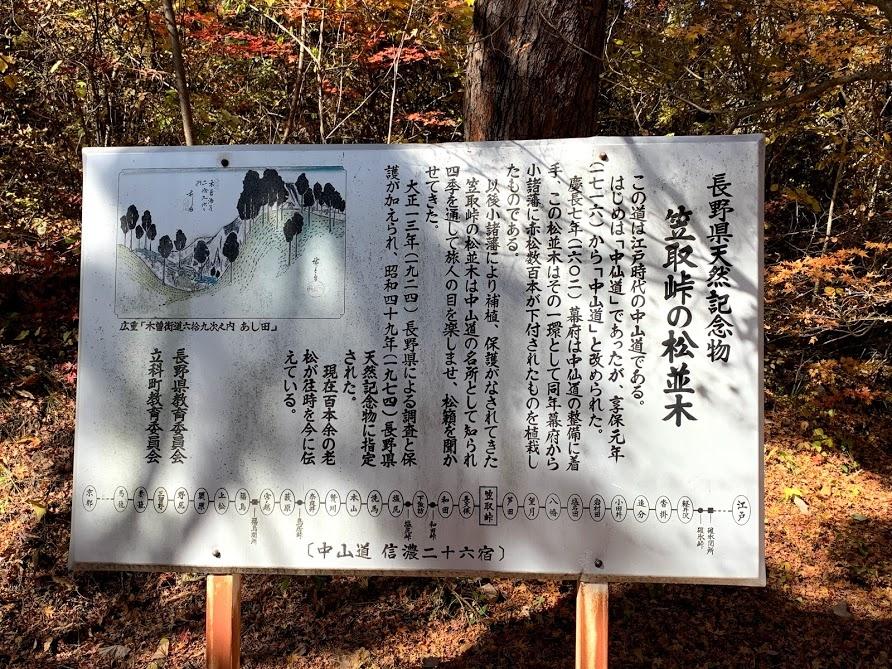 長野県天然記念物
笠取峠の松並木
この道は江戸時代の中山道である。
はじめは「中仙道」であったが、享保元年
(一七一六)から「中山道」と改められた。
慶長七年(一六〇二)幕府は中仙道の整備に着
手、この松並木はその一環として同年幕府から
小諸藩に赤松数百本が下付されたものを植栽し
たものである。
以後小諸藩により補植、保護がなされてきた
笠取峠の松並木は中山道の名所として知られ
四季を通して旅人の目を楽しませ、松籟を聞か
せてきた。
大正一三年(一九二四)長野県による調査と保
護が加えられ、昭和四十九年(一九七四)長野県
天然記念物に指定
された。
現在百本余の老
松が往時を今に伝
えている。
長野県教育委員会
立科町教育委員会
広重「木曽街道六拾九次之内 あし田」
江戸
碓氷関所
碓氷峠
軽井沢
沓掛
追分
小田井
岩村田
塩名田
八幡
望月
芦田
笠取峠
長久保
和田
和田峠
下諏訪
塩尻峠
塩尻
洗馬
本山
贄川
奈良井
鳥居峠
薮原
宮ノ越
福島関所
福島
上松
須原
野尻
三留野
妻籠
馬籠
京都
〔中山道 信濃二十六宿〕